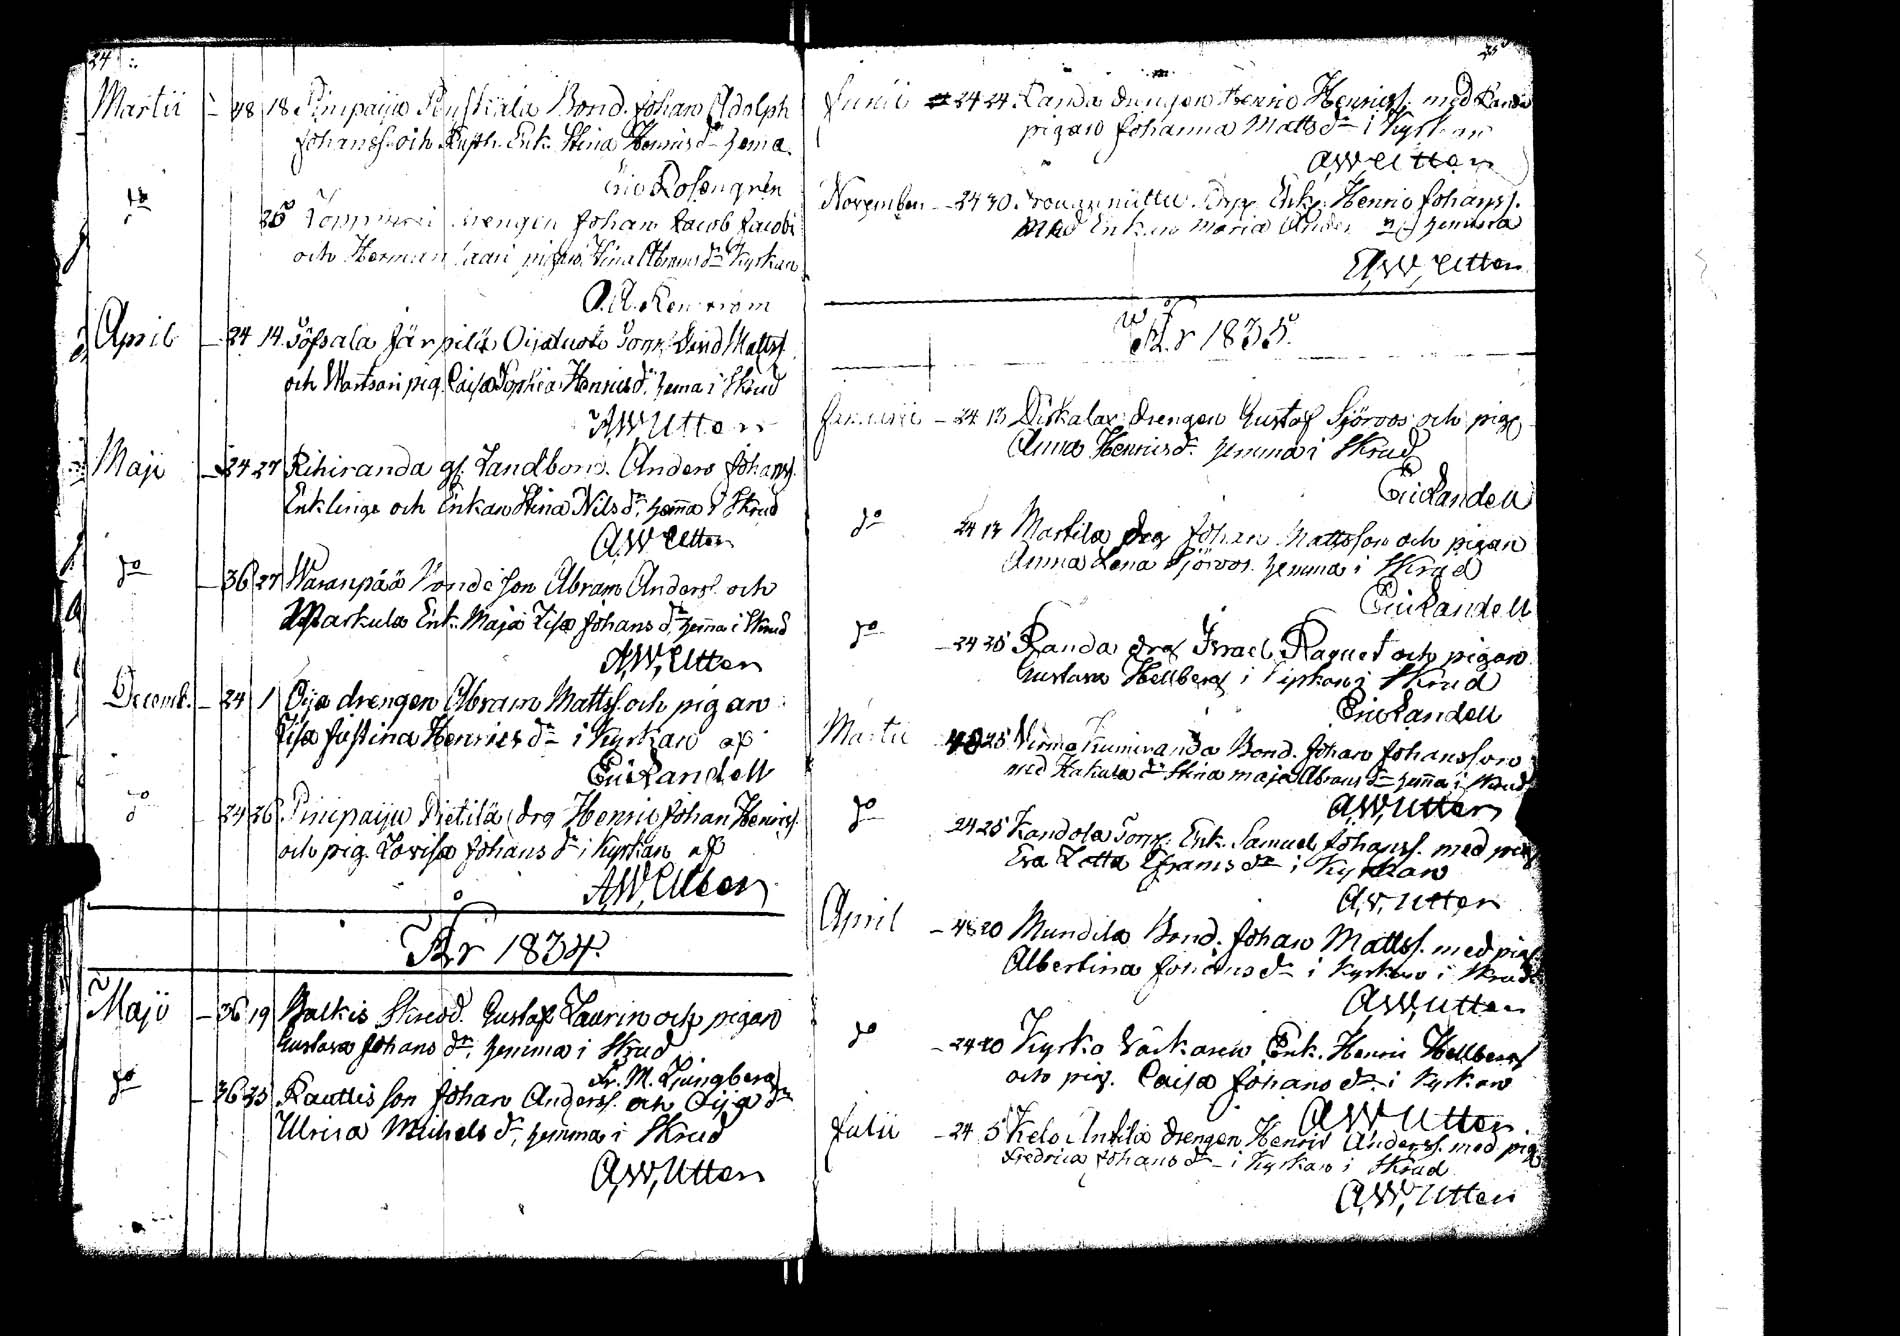 24
Martii - 48 18 Pinipaiju Bond. Johan Adolph
Johanss. och Enk. Stina Henricsdr hema
Eric Rosengrén
do
25 drengen Johan Jacob Jacobs
och Herman pigan Abramsdr Kyrkan
O. A.
April - 24 14 Töfsala Järpilä Torp. Mattss.
och Wartsari pig. Caisa Sophia Henricsdr hema i Skrud
A,W Utter
Maji - 24 27 Rihiranda gl. Landbond. Anders Johanss.
Enklinge och Enkan Stina Nilsdr, hem̄a i Skrud
A,W Utter
do - 36 27 Waranpää Bonde son Abram Anderss. och
Markula Enk. Maja Lisa Johansdr, hem̄a i Skrud
A,W, Utter
Decemb. - 24 1 Oija drengen Abram Mattss. och pigan
Lisa Justina Henricsdr i Kyrkan af
Eric Randell
do - 24 26 Pinipaiju Pietilä drg Henric Johan Henricss.
och pig. Lovisa Johansdr i Kyrkan af
A,W, Utter
År 1834.
Maji - 36 19 Balkis Skredd. Gustaf Laurin och pigan
Gustava Johansdr, hemma i Skrud
Fr. M. Ljungberg
do - 36 25 Kauttis son Johan Anderss. och Oija dr
Ulrica Michelsdr, hem̄ma i Skrud
A,W, Utter
25
Junii 24 24 Randa drengen Henric Henricss. med Randa
pigan Johanna Mattsdr i Kyrkan
A,W Utter
November - 24 30 Enk. Henric Johanss.
med Enkan Maria hemma
A,W, Utter
År 1835.
Januarii - 24 13 Diskalax drengen Gustaf Sjöroos och pig.
Anna Henricsdr hemma i Skrud
Eric Randell
do 24 13 Martila drg Johan Mattsson och pigan
Anna Lena Sjöroos. hemma i Skrud
Eric Randell
do - 24 25 Randa drg Israel Raquet och pigan
Gustava Hellberg i Skrud
Eric Randell
Martii 48 25 Nirma Kumiranda Bond. Johan Johansson
med Kakula dr Stina Maja Abramsdr hem̄a i Skrud
A,W, Utter
do 24 25 Kandola Torp. Enk. Samuel Johanss. med pig.
Eva Lotta Eframsdr i Kyrkan
A,W, Utter
April - 48 20 Mundila Bond. Johan Mattss. med pig
Albertina Johansdr i Kyrkan i Skrud
A,W, Utter
do - 24 20 Kyrko Enk. Henric Hellberg
och pig. Caisa Johansdr i Kyrkan
A,W, Utter
Julii - 24 5 Kelo Antila drengen Henric Anderss. med pig
Fredrica Johansdr i Kyrkan i Skrud
A,W, Utter